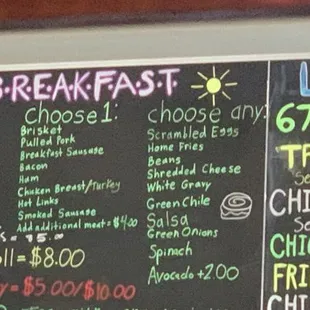 B·R·E·A·K·F·A·S·T
Choose 1:
Brisket
Pulled Pork
Breakfast Sausage
Bacon
Ham
Chicken Breast/Turkey
Hot Links
Smoked Sausage
Add additional meat = $4.00
choose any:
Scrambled Eggs
Home Fries
Beans
Shredded Cheese
White Gravy
Green Chile
Salsa
Green Onions
Spinach
Avocado +2.00
= $8.00
= $5.00/$10.00